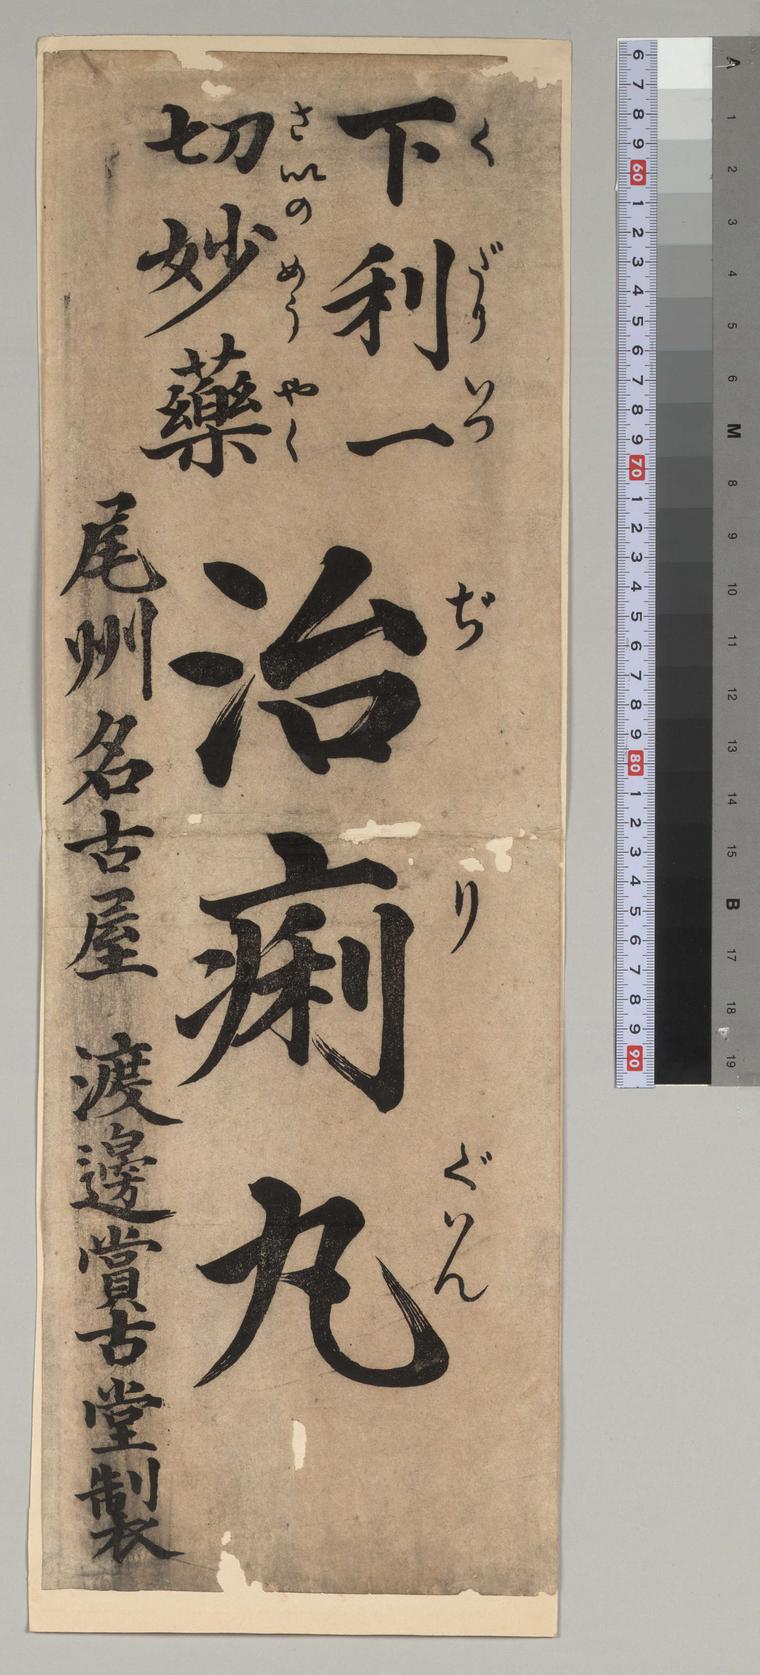 下利一
くだりいつ
切妙藥
さいのめうやく
治痢丸
ぢりぐいん
尾州名古屋 渡邊賞古堂製
6 7 8 9 60 1 2 3 4 5 6 7 8 9 70 1 2 3 4 5 6 7 8 9 80 1 2 3 4 5 6 7 8 9 90
A 1 2 3 4 5 6 M 8 9 10 11 12 13 14 15 B 17 18 19